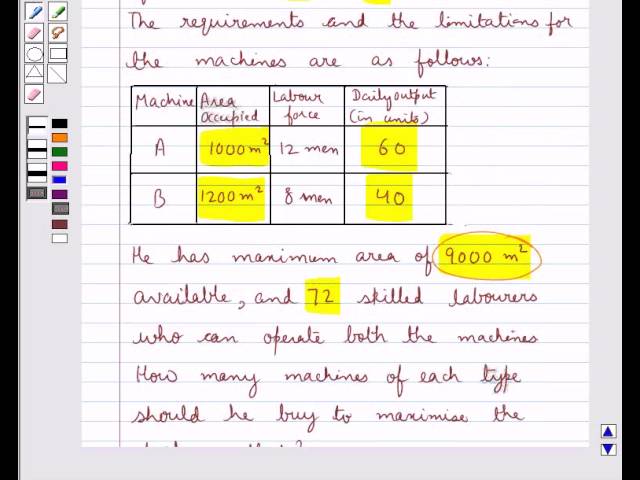 The requirements and the limitations for
the machines are as follows:
Machine Area Occupied Labour force Daily output (in units)
A 1000 m² 12 men 60
B 1200 m² 8 men 40
He has maximum area of 9000 m²
available, and 72 skilled labourers
who can operate both the machines
How many machines of each type
should he buy to maximise the